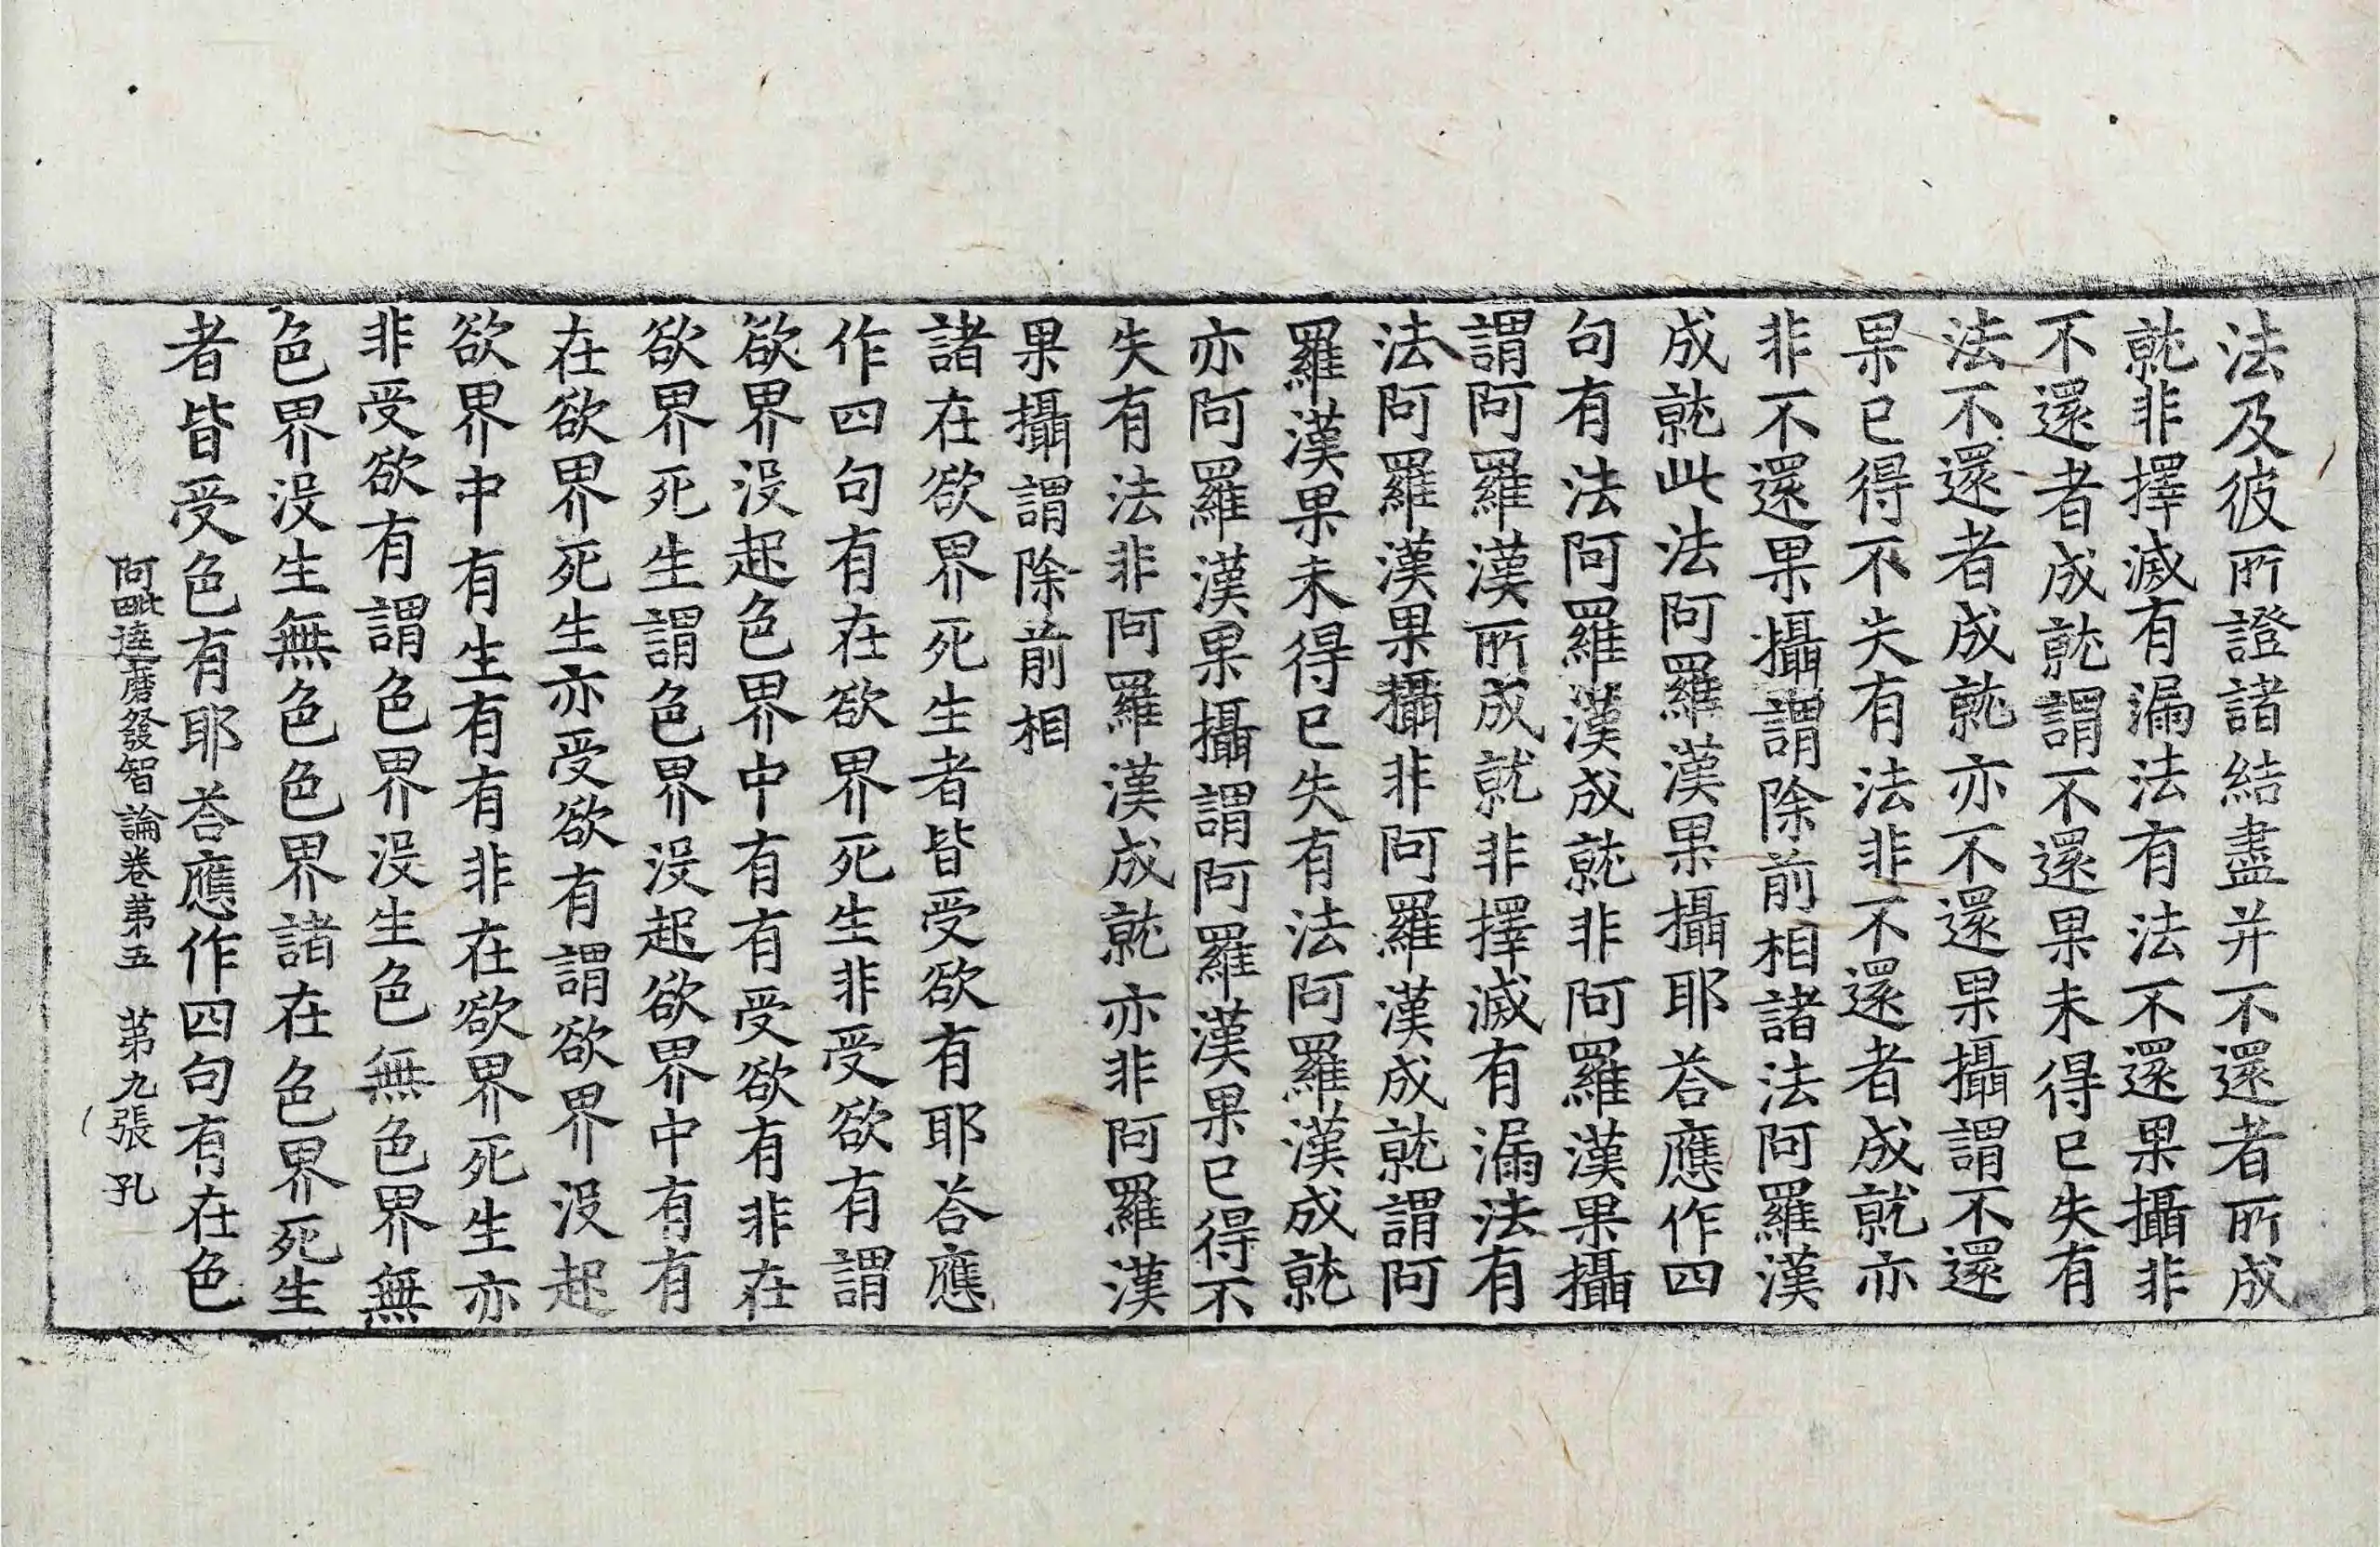 法及彼所證諸結盡并不還者所成
就非擇滅有漏法有法不還果攝非
不還者成就謂不還果未得已失有
法不還者成就亦不還果攝謂不還
果已得不失有法非不還者成就亦
非不還果攝謂除前相諸法阿羅漢
成就此法阿羅漢果攝耶荅應作四
句有法阿羅漢成就非阿羅漢果攝
謂阿羅漢所成就非擇滅有漏法有
法阿羅漢果攝非阿羅漢成就謂阿
羅漢果未得已失有法阿羅漢成就
亦阿羅漢果攝謂阿羅漢果已得不
失有法非阿羅漢成就亦非阿羅漢
果攝謂除前相
諸在欲界死生者皆受欲有耶荅應
作四句有在欲界死生非受欲有謂
欲界沒起色界中有有受欲有非在
欲界死生謂色界沒起欲界中有有
在欲界死生亦受欲有謂欲界沒起
欲界中有生有有非在欲界死生亦
非受欲有謂色界沒生色無色界無
色界沒生無色色界諸在色界死生
者皆受色有耶荅應作四句有在色
阿毗達磨發智論卷第五 第九張 孔